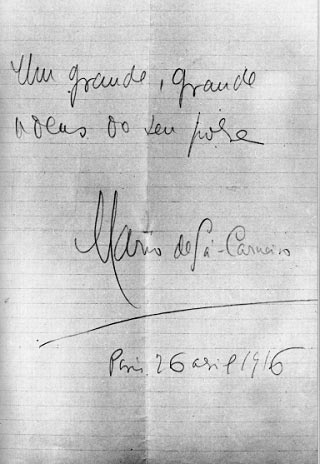 Um grande, grande
adeus do seu pobre
Mário de Sá-Carneiro
Paris 26 abril 1916